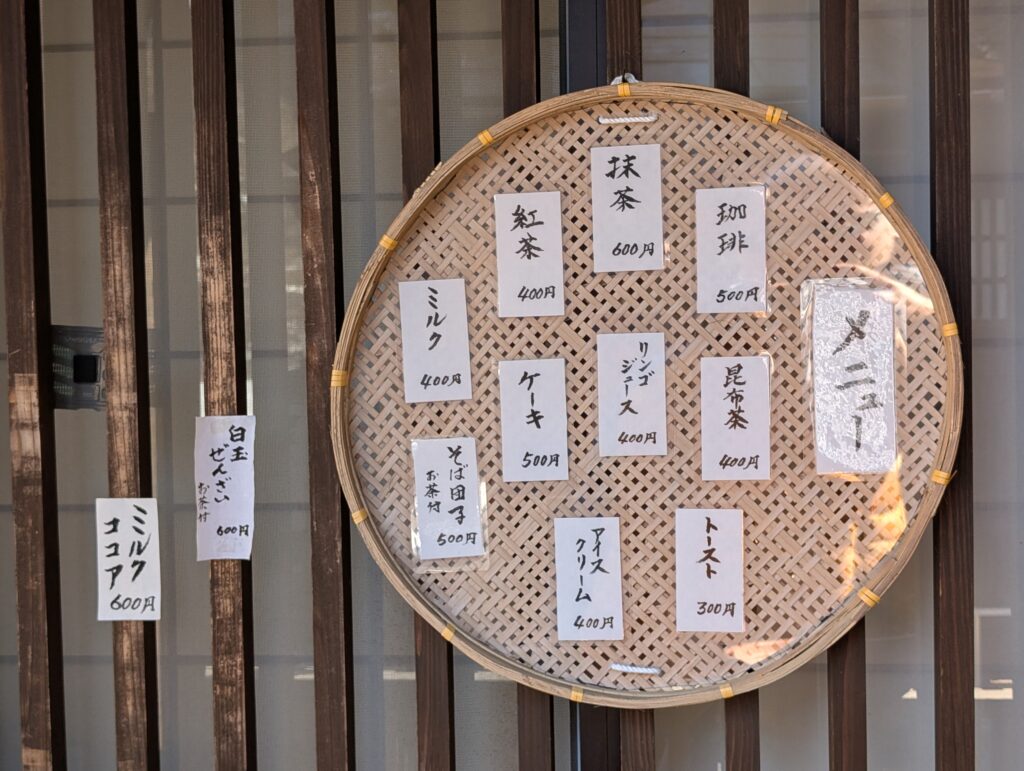 メニュー
珈琲
500円
抹茶
600円
紅茶
400円
ミルク
400円
昆布茶
400円
リンゴ
ジュース
400円
ケーキ
500円
そば団子
お茶付
500円
トースト
300円
アイス
クリーム
400円
白玉
ぜんざい
お茶付
600円
ミルク
ココア
600円